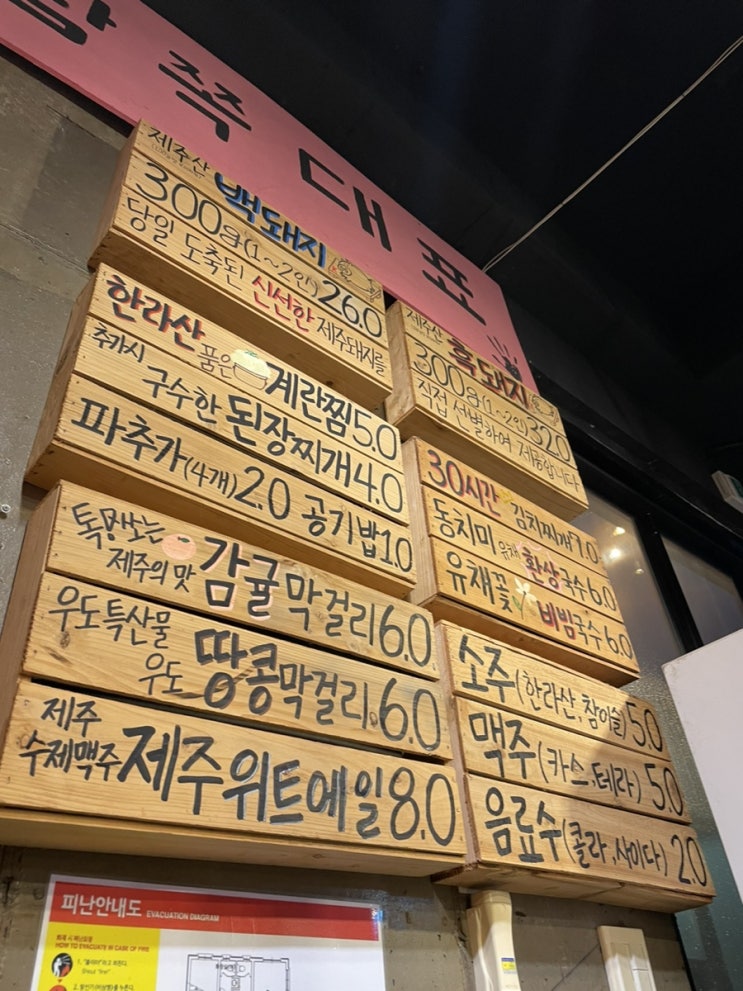 쪽 대 표
제주산 백돼지
300g(1~2인) 26.0
당일 도축된 신선한 제주돼지를
한라산 품은 계란찜 5.0
추가시 구수한 된장찌개 4.0
파추가(4개) 2.0 공기밥 1.0
톡쏘는 제주의 맛 감귤막걸리 6.0
우도특산물 우도 땅콩막걸리 6.0
제주 수제맥주 제주위트에일 8.0
제주산 흑돼지
300g(1~2인) 32.0
직접 선별하여 제공합니다
30시간 김치찌개 7.0
동치미 유채 환상국수 6.0
유채꽃 비빔국수 6.0
소주(한라산,참이슬) 5.0
맥주(카스,테라) 5.0
음료수(콜라,사이다) 2.0
피난안내도 EVACUATION DIAGRAM
HOW TO EVACUATE IN CASE OF FIRE
1. "불이야"라고 외친다.
Shout "fire"